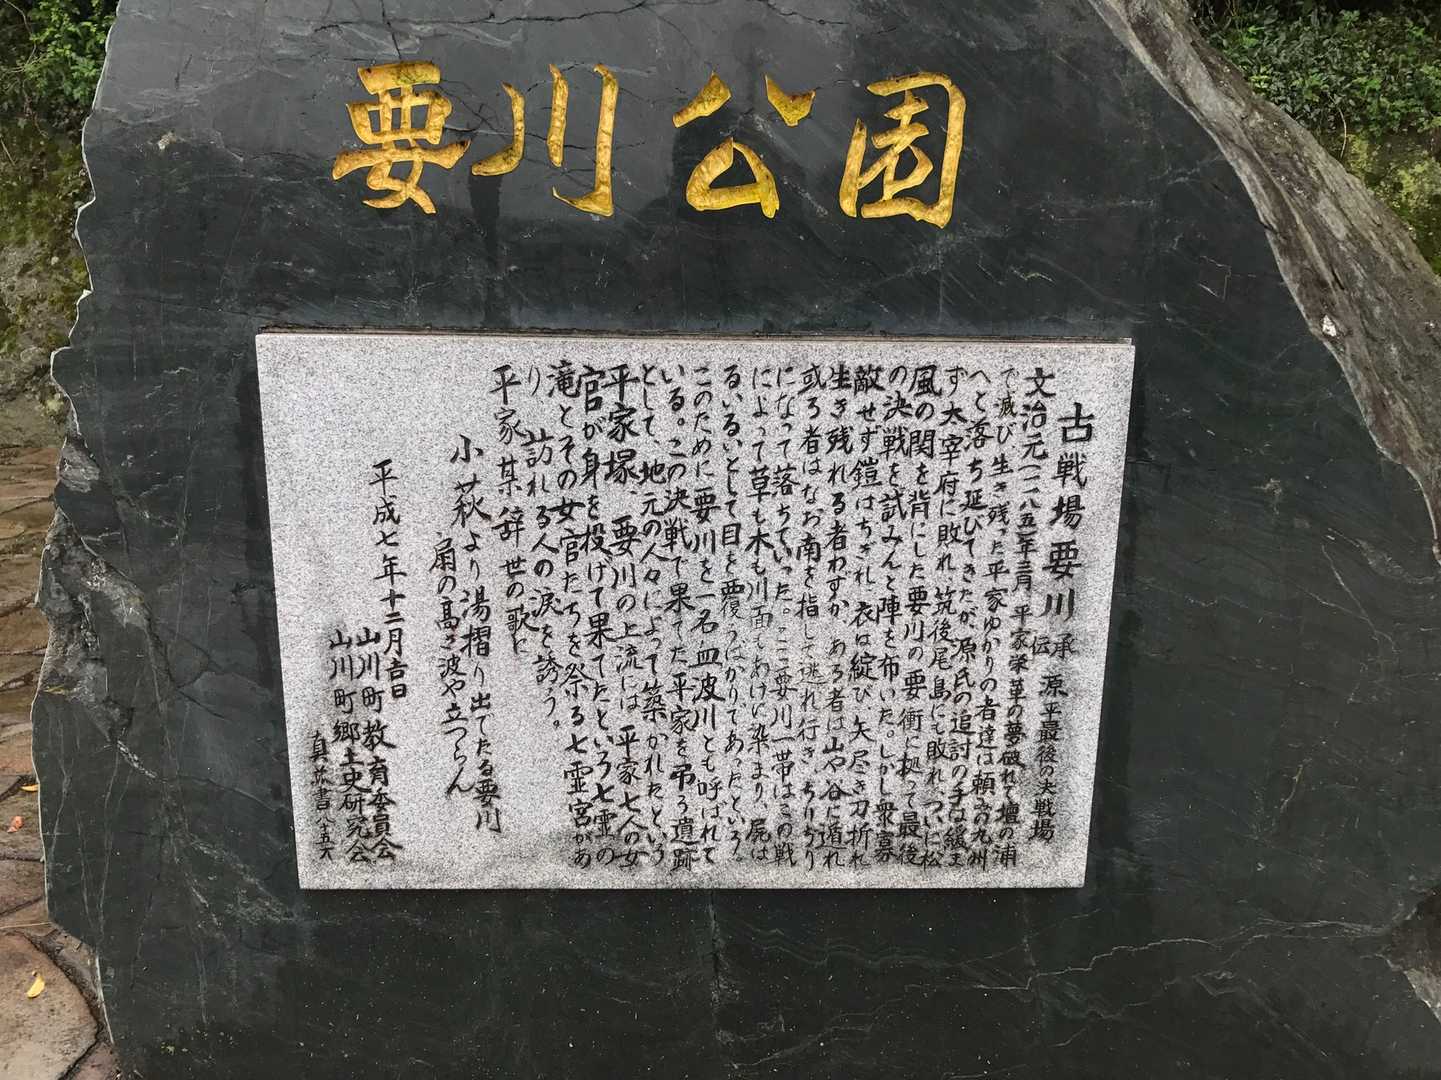 要川公園
古戦場要川 伝承 源平最後の決戦場
文治元(一一八五)年三月、平家栄華の夢破れて壇の浦
で滅び生き残った平家ゆかりの者達は頼みの九州
へと落ち延びてきたが、源氏の追討の手は緩ま
ず太宰府に敗れ、筑後尾島にも敗れ、ついに松
風の関を背にした要川の要衝に拠って最後
の決戦を試みんと陣を布いた。しかし衆寡
敵せず鎧はちぎれ、衣は綻び、矢尽き刀折れ
生き残れる者わずか、ある者は山や谷に遁れ
或る者はなお南を指して逃れ行き、ちりぢり
になって落ちていった。ここ要川一帯はこの戦
によって草も木も川面もあけに染まり、屍は
るいるいとして目を覆うばかりであったという。
このために要川を一名皿波川とも呼ばれて
いる。この決戦で果てた平家を弔う遺跡
として、地元の人々によって築かれたという
平家塚、要川の上流には平家七人の女
官が身を投げて果てたという七霊の
滝とその女官たちを祭る七霊宮があ
り、訪れる人の涙を誘う。
平家某辞世の歌に
小萩より湯摺り出でたる要川
扇の高さ波や立つらん
平成七年十二月吉日
山川町教育委員会
山川町郷土史研究会
真 書 八五才